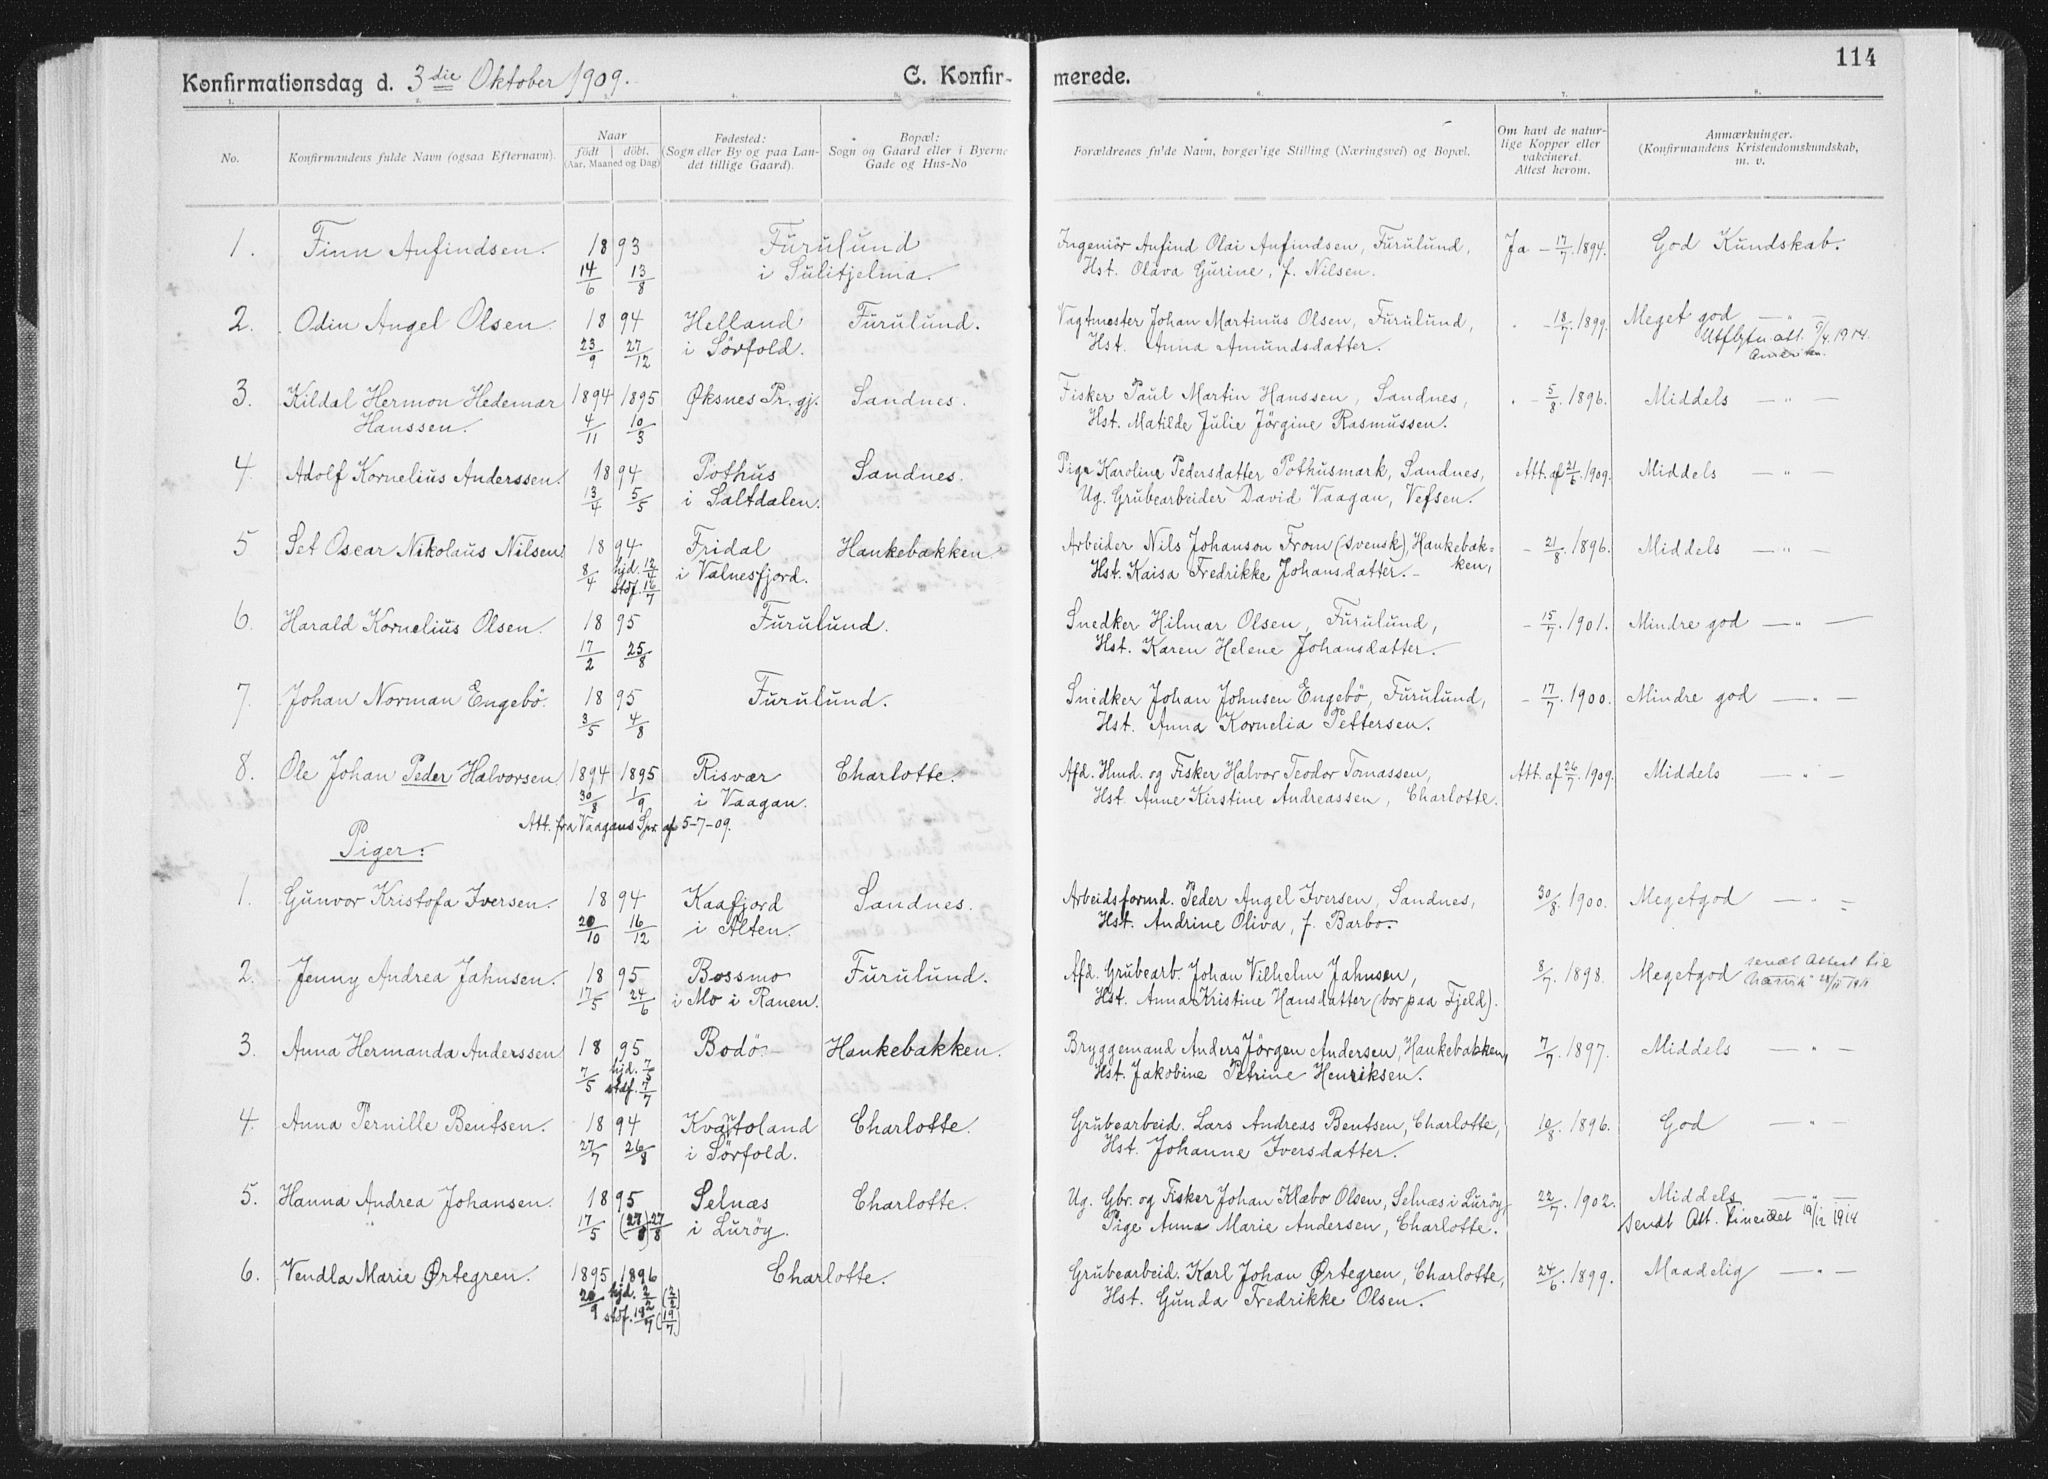 114
Konfirmationsdag d. 3die Oktober 1909. C. Konfirmerede.
1. 2. 3. 4. 5. 6. 7. 8.
No. Konfirmandens fulde Navn (ogsaa Efternavn). Naar født døbt. (Aar, Maaned og Dag) Fødested: (Sogn eller By og paa Landet tillige Gaard). Bopæl: Sogn og Gaard eller i Byerne Gade og Hus-No Forældrenes fulde Navn, borgerlige Stilling (Næringsvei) og Bopæl. Om havt de naturlige Kopper eller vakcineret. Attest herom. Anmærkninger. (Konfirmandens Kristendomskundskab, m. v.
1. Finn Anfindsen. 18 93 Furulund Ingeniör Anfind Olai Anfindsen, Furulund, Ja - 17/7. 1894. God Kundskab.
14/6 13/8 i Sulitjelma. Hst. Olava Gurine, f. Nilsen.
2. Odin Angel Olsen. 18 94 Helland Furulund. Vagtmester Johan Martinus Olsen, Furulund, " - 18/7. 1899. Meget god — " —
23/9 27/12 i Sörfold. Hst. Anna Amundsdatter. Utflytn. att. 7/4. 1914. Amerika.
3. Kildal Hermon Hedemar 1894 1895 Øksnes Pr.gj. Sandnes. Fisker Paul Martin Hanssen, Sandnes, " - 5/8. 1896. Middels — " —
Hanssen. 4/11 10/3 Hst. Matilde Julie Jörgine Rasmussen.
4. Adolf Kornelius Anderssen. 18 94 Pothus Sandnes. Pige Karoline Pedersdatter Pothusmark, Sandnes, Att. af 21/6. 1909. Middels — " —
13/4 5/5 i Saltdalen. Ug. Grubearbeider David Vaagan, Vefsen.
5 Set Oscar Nikolaus Nilsen 18 94 Fridal Hankebakken Arbeider Nils Johanson From (svensk), Hankebak= - 21/8. 1896. Middels — " —
8/4 hjd. 12/4 stdf. 16/7 i Valnesfjord. Hst. Kaisa Fredrikke Johansdatter. - ken,
6. Harald Kornelius Olsen. 18 95 Furulund. Snedker Hilmar Olsen, Furulund, - 15/7. 1901. Mindre god — " —
17/2 25/8 Hst. Karen Helene Johansdatter.
7. Johan Norman Engebö. 18 95 Furulund. Snedker Johan Johnsen Engebö, Furulund, - 17/7. 1900. Mindre god — " —
3/5 4/8 Hst. Anna Kornelia Pettersen.
8. Ole Johan Peder Halvorsen 1894 1895 Risvær Charlotte. Afd. Hmd. og Fisker Halvor Teodor Tomassen, Att. af 26/7. 1909. Middels — " —
30/8 1/9 i Vaagan. Hst. Anne Kirstine Andreassen, Charlotte.
Att. fra Vaagans Spr. af 5-7-09.
Piger.
1. Gunvor Kristofa Iversen. 18 94 Kaafjord Sandnes. Arbeidsformd. Peder Angel Iversen, Sandnes, 30/8. 1900. Megetgod — " —
20/10 16/12 i Alten. Hst. Andrine Oliva, f. Barbo.
2. Jenny Andrea Jahnsen. 18 95 Bossmo Furulund. Afd. Grubearb. Johan Vilhelm Jahnsen, 8/7. 1898. Megetgod sendt Attest til
17/5 24/6 i Mo i Ranen. Hst. Anna Kristine Hansdatter (bor paa Fjeld). Narvik
3. Anna Hermanda Anderssen 18 95 Bodö. Hankebakken. Bryggemand Anders Jörgen Andersen, Hankebakken, 7/7. 1897. Middels — " —
7/5 hjd. 7/5 stdf. 7/7 Hst. Jakobine Petrine Henriksen.
4. Anna Pernille Bentsen. 18 94 Kvantoland Charlotte. Grubearbeid. Lars Andreas Bentsen, Charlotte, 10/8. 1896. God — " —
27/7 26/8 i Sörfold. Hst. Johanne Iversdatter.
5. Hanna Andrea Johansen. 18 95 Selnæs Charlotte. Ug. Gbr. og Fisker Johan Klæbo Olsen, Selnæs i Luröy, 22/7. 1902. Middels — " —
17/5 (27/8) 27/8 i Luröy. Pige Anna Marie Andersen, Charlotte. Sendt Att. Fineidet 19/12 1914
6. Vendla Marie Ørtegren. 1895 1896 Charlotte. Grubearbeid. Karl Johan Ørtegren, Charlotte, 24/6. 1899. Maadelig — " —
20/9 hjd. 2/2 stdf. 19/7 (2/2 19/7) Hst. Gunda Fredrikke Olsen.